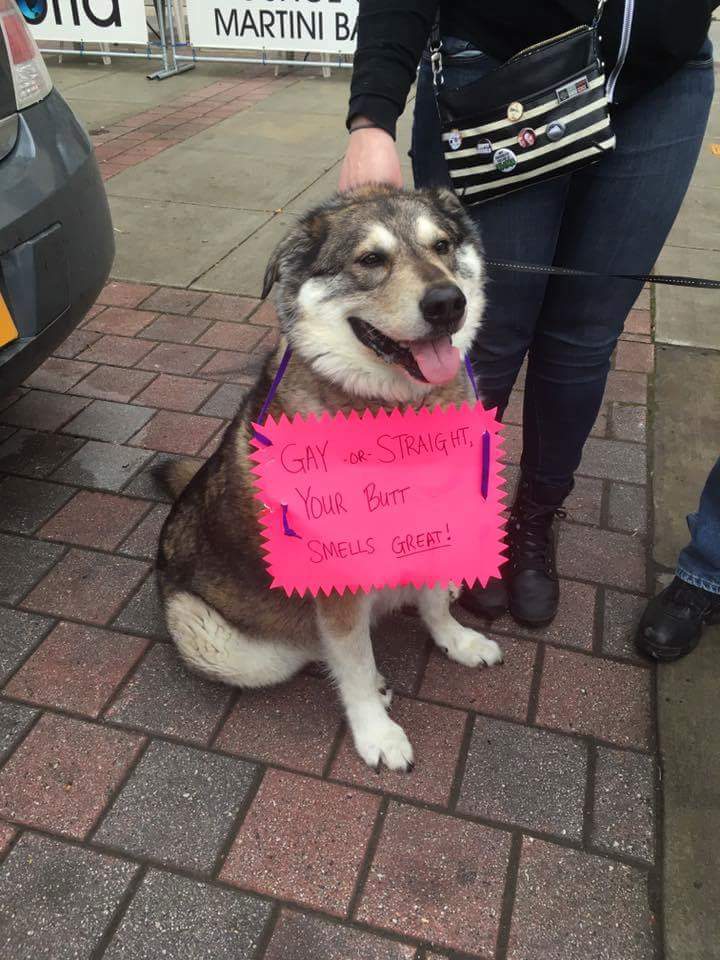 MARTINI BA
GAY -OR- STRAIGHT,
YOUR BUTT
SMELLS GREAT!